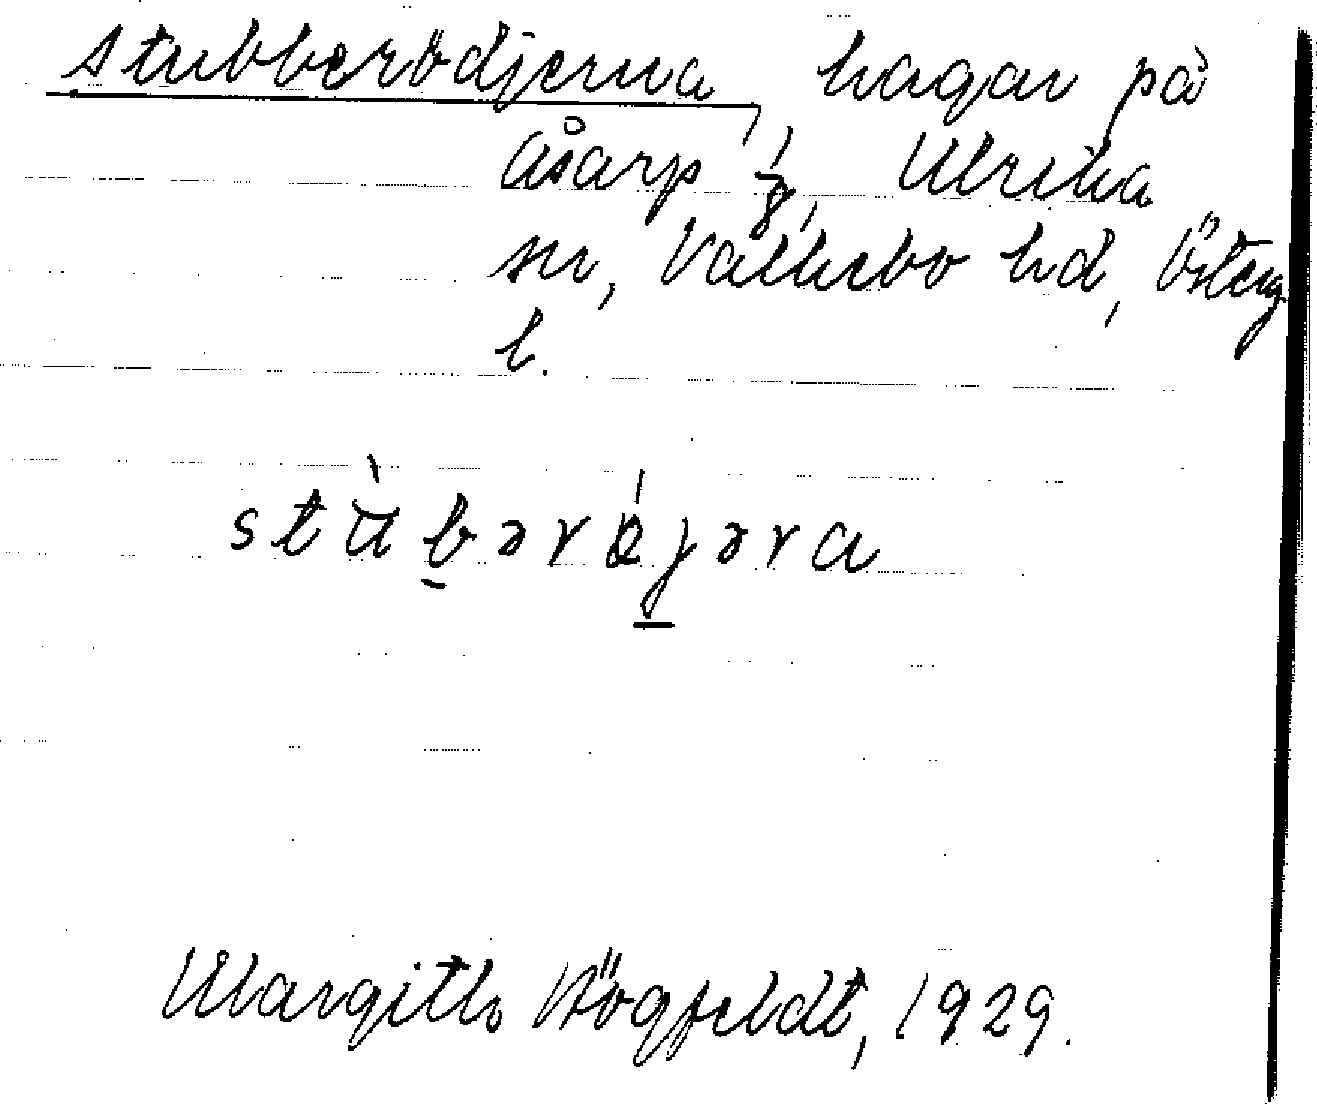 Stubberödjerna, hagar på
Åsarp 1/8, Ulrika
sn, Valkebo hd, Österg.
l.
stùbərǿjərа
Margith Högfeldt, 1929.